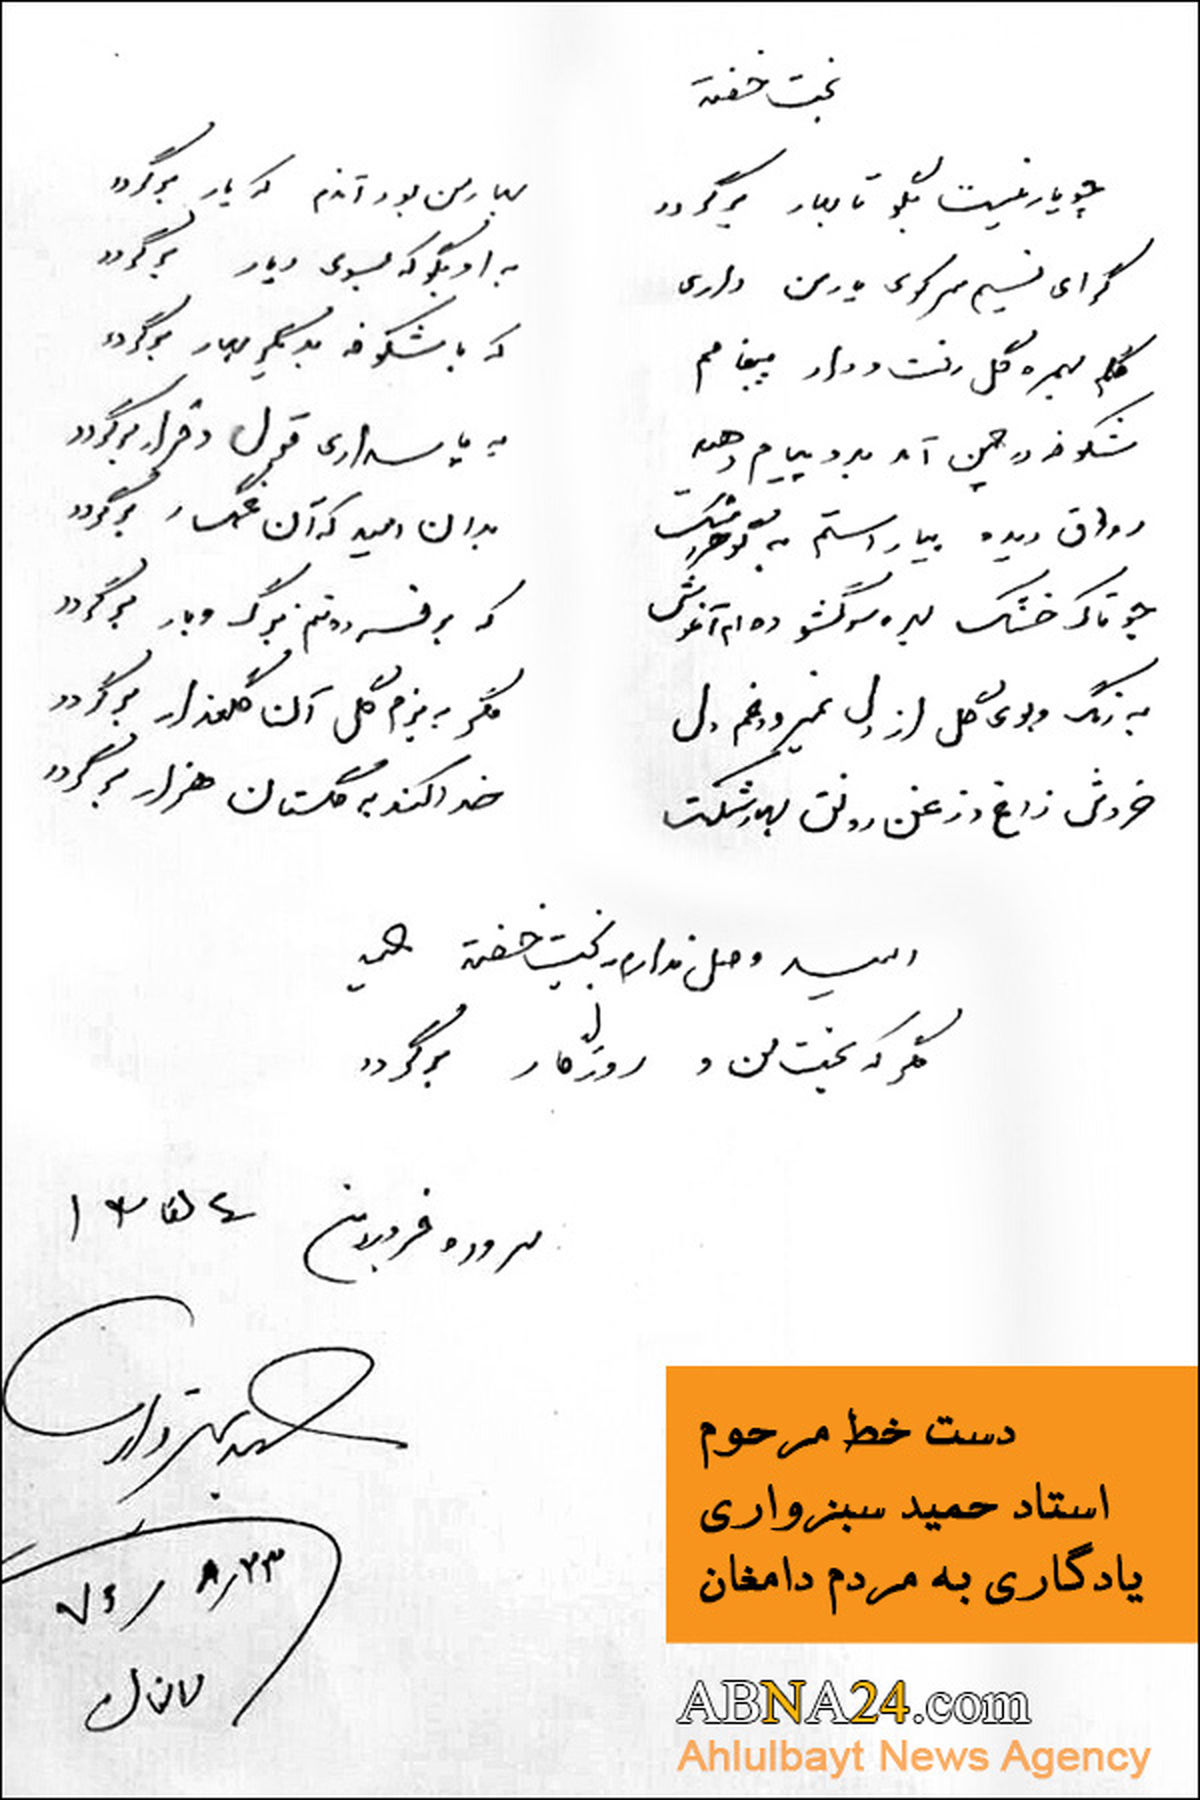 بخت خفته
چو یار نیست بگو تا بهار برگردد
بهار من بود آندم که یار برگردد
گر ای نسیم سر کوی یار من داری
به او بگو که بسوی دیار برگردد
گلم بهمره گل رفت و داد پیغامم
که با شکوفه بدیگر بهار برگردد
شکوفه در چمن آمد بدو پیام دهید
به پاسداری قول و قرار برگردد
رواق دیده بیاراستم به گوهر اشک
بدان امید که آن غمگسار برگردد
چو تاک خشک بهر سو گشوده ام آغوش
که بر فسرده تنم برگ و بار برگردد
به رنگ و بوی گل از دل نمیرود غم دل
مگر به بزم گل آن گلعذار برگردد
خروش زاغ و زغن رونق بهار شکست
خدا کند به گلستان هزار برگردد
امید وصل ندارم به بخت خفته حمید
مگر که بخت من و روزگار برگردد
سروده فروردین
حمید سبزواری
۷۶/۸/۲۳
دامغان
دست خط مرحوم
استاد حمید سبزواری
یادگاری به مردم دامغان
ABNA24.com
Ahlulbayt News Agency